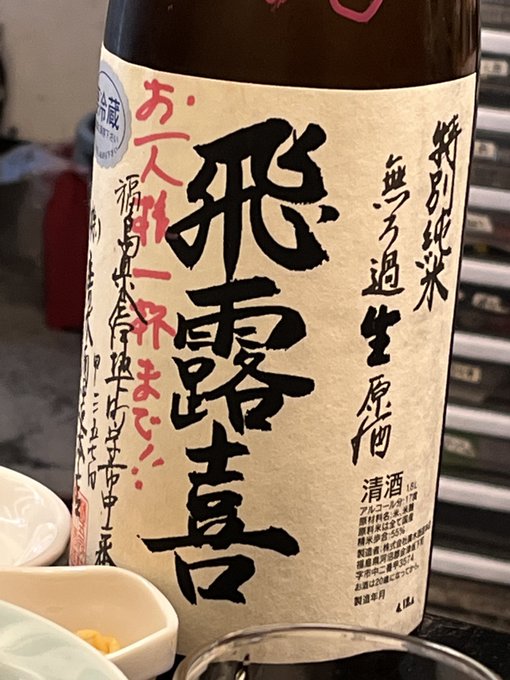 特別純米
無ろ過生原酒
飛露喜
お一人様一杯まで!!
冷蔵
福島県
清酒 1.8L
アルコール分17度
原材料名:米、米麹
原料米は全て国産
精米歩合:55%
製造者:株式会社廣木酒造本店
福島県河沼郡会津坂下町
字市中二番甲3574
お酒は20歳になってから。
製造年月